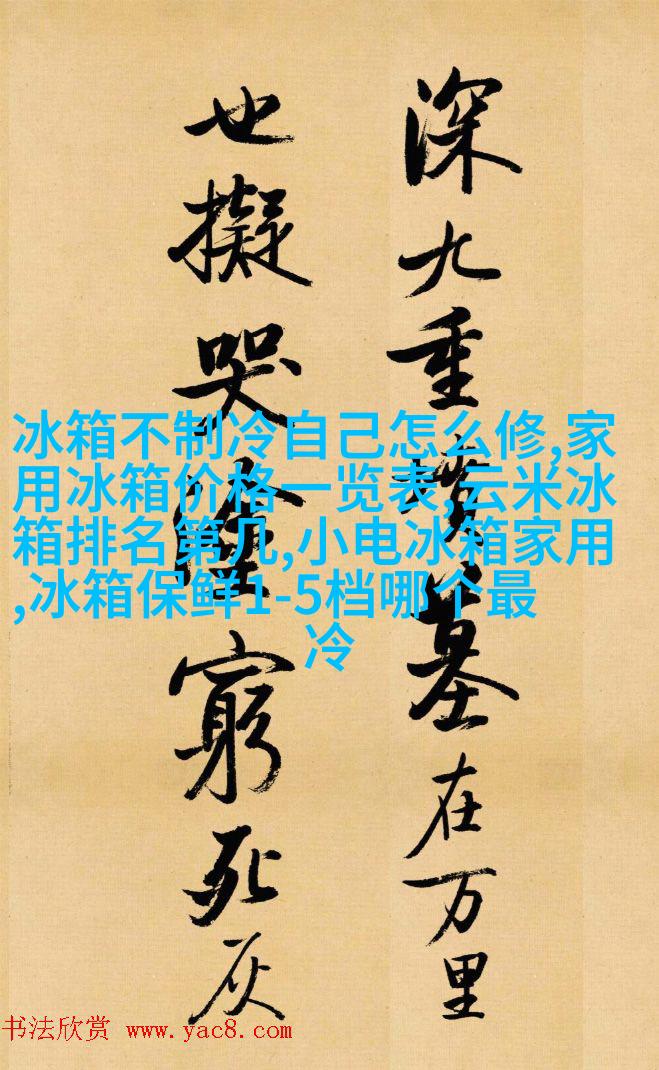 深九重墳墓在万里
也擬哭塗窮死灰
冰箱不制冷自己怎么修,家
用冰箱价格一览表,云米冰
箱排名第几,小电冰箱家用
,冰箱保鲜1-5档哪个最
冷
书法欣赏 www.yac8.com